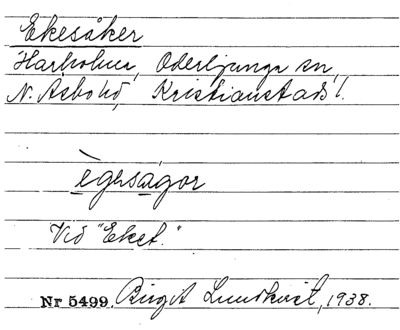 Ekesåker
Harholma, Oderljunga sn,
N. Åsbo hd, Kristianstads l.
ègersagor
Vid "Eket."
Nr 5499. Birgit Lundkvist, 1938.